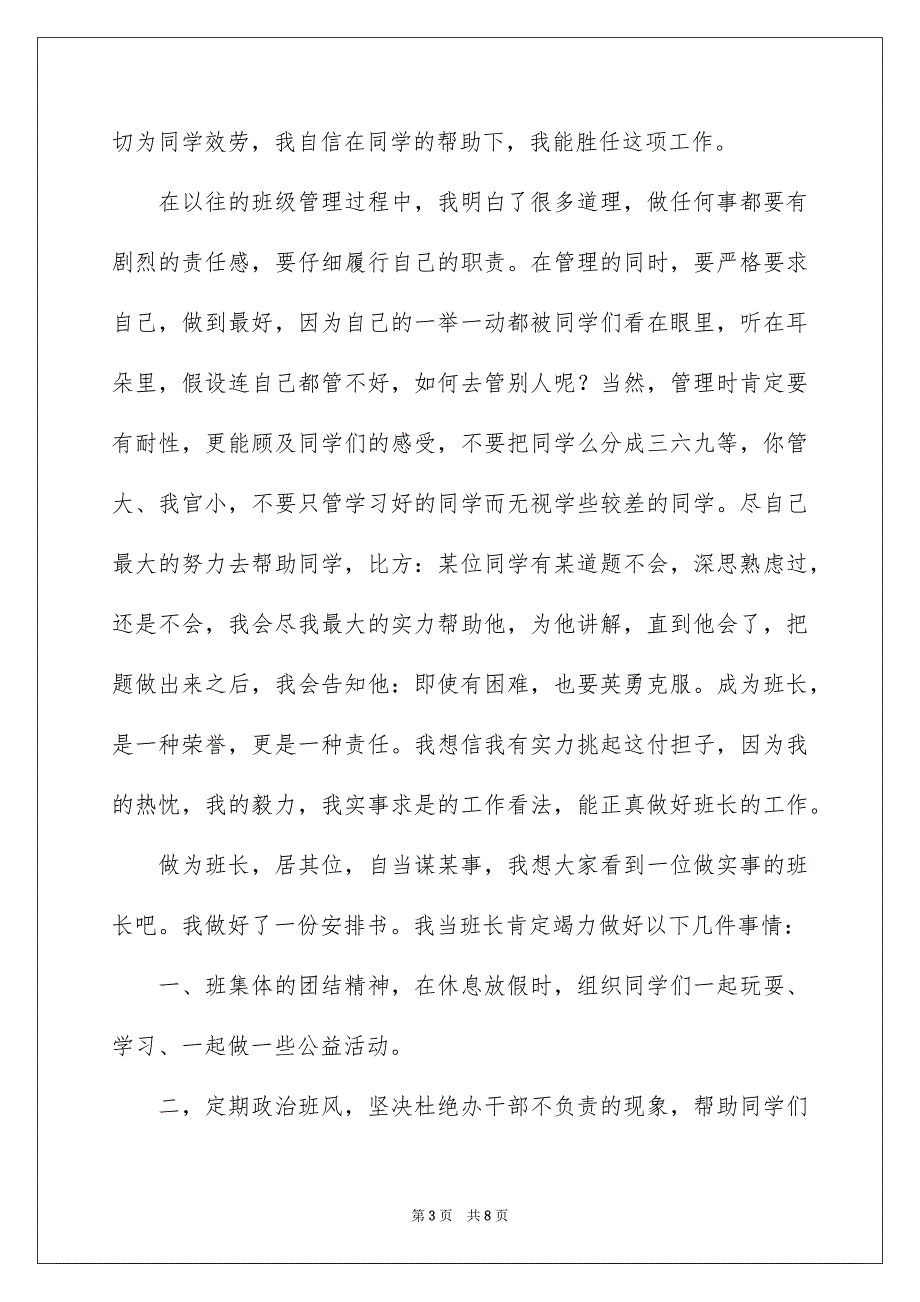 切为同学效劳，我自信在同学的帮助下，我能胜任这项工作。
在以往的班级管理过程中，我明白了很多道理，做任何事都要有
剧烈的责任感，要仔细履行自己的职责。在管理的同时，要严格要求
自己，做到最好，因为自己的一举一动都被同学们看在眼里，听在耳
朵里，假设连自己都管不好，如何去管别人呢？当然，管理时肯定要
有耐性，更能顾及同学们的感受，不要把同学么分成三六九等，你管
大、我官小，不要只管学习好的同学而无视学些较差的同学。尽自己
最大的努力去帮助同学，比方：某位同学有某道题不会，深思熟虑过，
还是不会，我会尽我最大的实力帮助他，为他讲解，直到他会了，把
题做出来之后，我会告知他：即使有困难，也要英勇克服。成为班长，
是一种荣誉，更是一种责任。我想信我有实力挑起这付担子，因为我
的热忱，我的毅力，我实事求是的工作看法，能正真做好班长的工作。
做为班长，居其位，自当谋某事，我想大家看到一位做实事的班
长吧。我做好了一份安排书。我当班长肯定竭力做好以下几件事情：
一、班集体的团结精神，在休息放假时，组织同学们一起玩耍、
学习、一起做一些公益活动。
二，定期政治班风，坚决杜绝办干部不负责的现象，帮助同学们
第 3 页 共 8 页